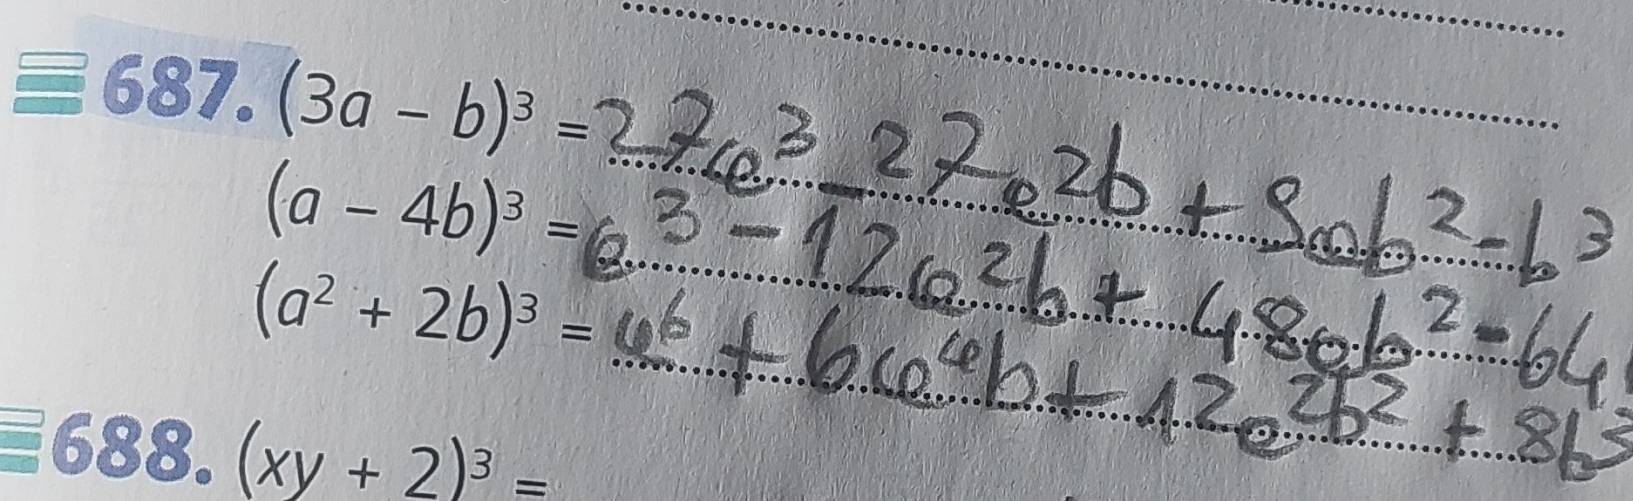 687. (3a - b)³ = 27a³ - 27a²b + 9ab² - b³
(a - 4b)³ = a³ - 12a²b + 48ab² - 64
(a² + 2b)³ = a⁶ + 6a⁴b + 12a²b² + 8b³
688. (xy + 2)³ =